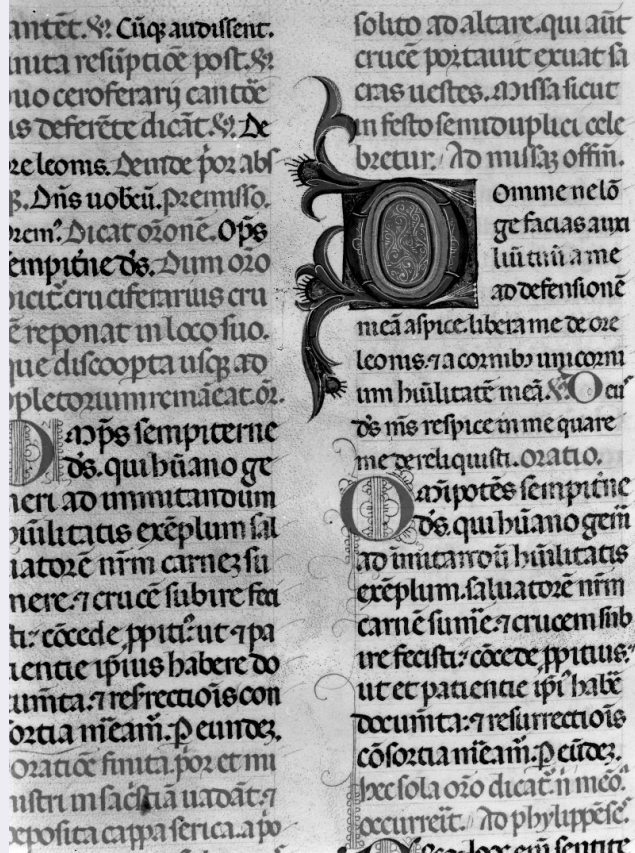 antēt. ℟. Cūq̄ audissent.
resūptiōe post. ℟
uo ceroferarij cantōe
is deferēte dicāt. ℟. De
ore leonis. Deinde p̄or abs
Dn̄s uobcū. Premisso.
Dicat or̄onē. Op̄s
empit̄ne ds̄. Dum or̄o
dicit̄ cruciferarius cru
ē reponat in loco suo.
que discoopta usq̄ ad
pletorium remāeat. or̄.
Om̄ps sempiterne
ds̄. qui hūano ge
neri ad immitandum
hūilitatis exēplum sal
uatorē nr̄m carnez su
mere. ⁊ crucē subire feci
sti: cōcede ꝓpiti: ut ⁊ pa
tientie ip̄ius habere do
cumīta. ⁊ resrrectiōis con
sortia mēam̄. P eundez.
oratiōe finita. p̄or et mi
nistri in sac̄stiā uadāt. ⁊
deposita cappa serica. a p̄o
solito ad altare. qui aūt
crucē portauit exuat sa
cras uestes. Missa sicut
in festo semiduplici cele
bretur. Ad missaȝ offm̄.
Domine ne lō
ge facias auxi
liū tuū a me
ad defensionē
meā aspice. libera me de ore
leonis. ⁊ a cornibȝ unicorni
um hūilitatē meā. ℟. Deus
ds̄ ms̄ respice in me quare
me dereliquisti. Oratio.
Om̄ipotēs sempit̄ne
ds̄. qui hūano geni
ad imitandū hūilitatis
exēplum. saluatorē nr̄m
carnē sumē. ⁊ crucem sub
ire fecisti: cōcede ꝓpitius:
ut et patientie ip̄i habē
documīta: ⁊ resurrectiōis
cōsortia mēam̄. P eūdez.
hec sola or̄o dicat̄. n̄ meō.
occurreīt. Ad phylippēse.